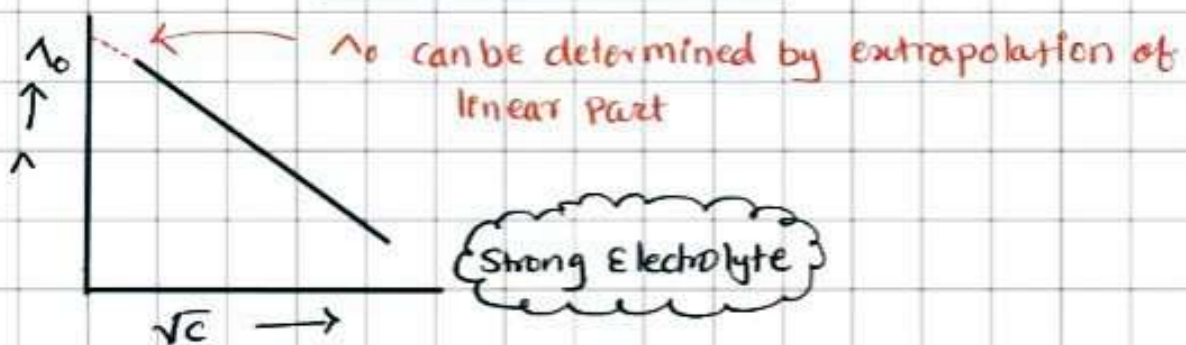 Λ₀ can be determined by extrapolation of
linear Part
Λ₀
Λ
Strong Electrolyte
√c